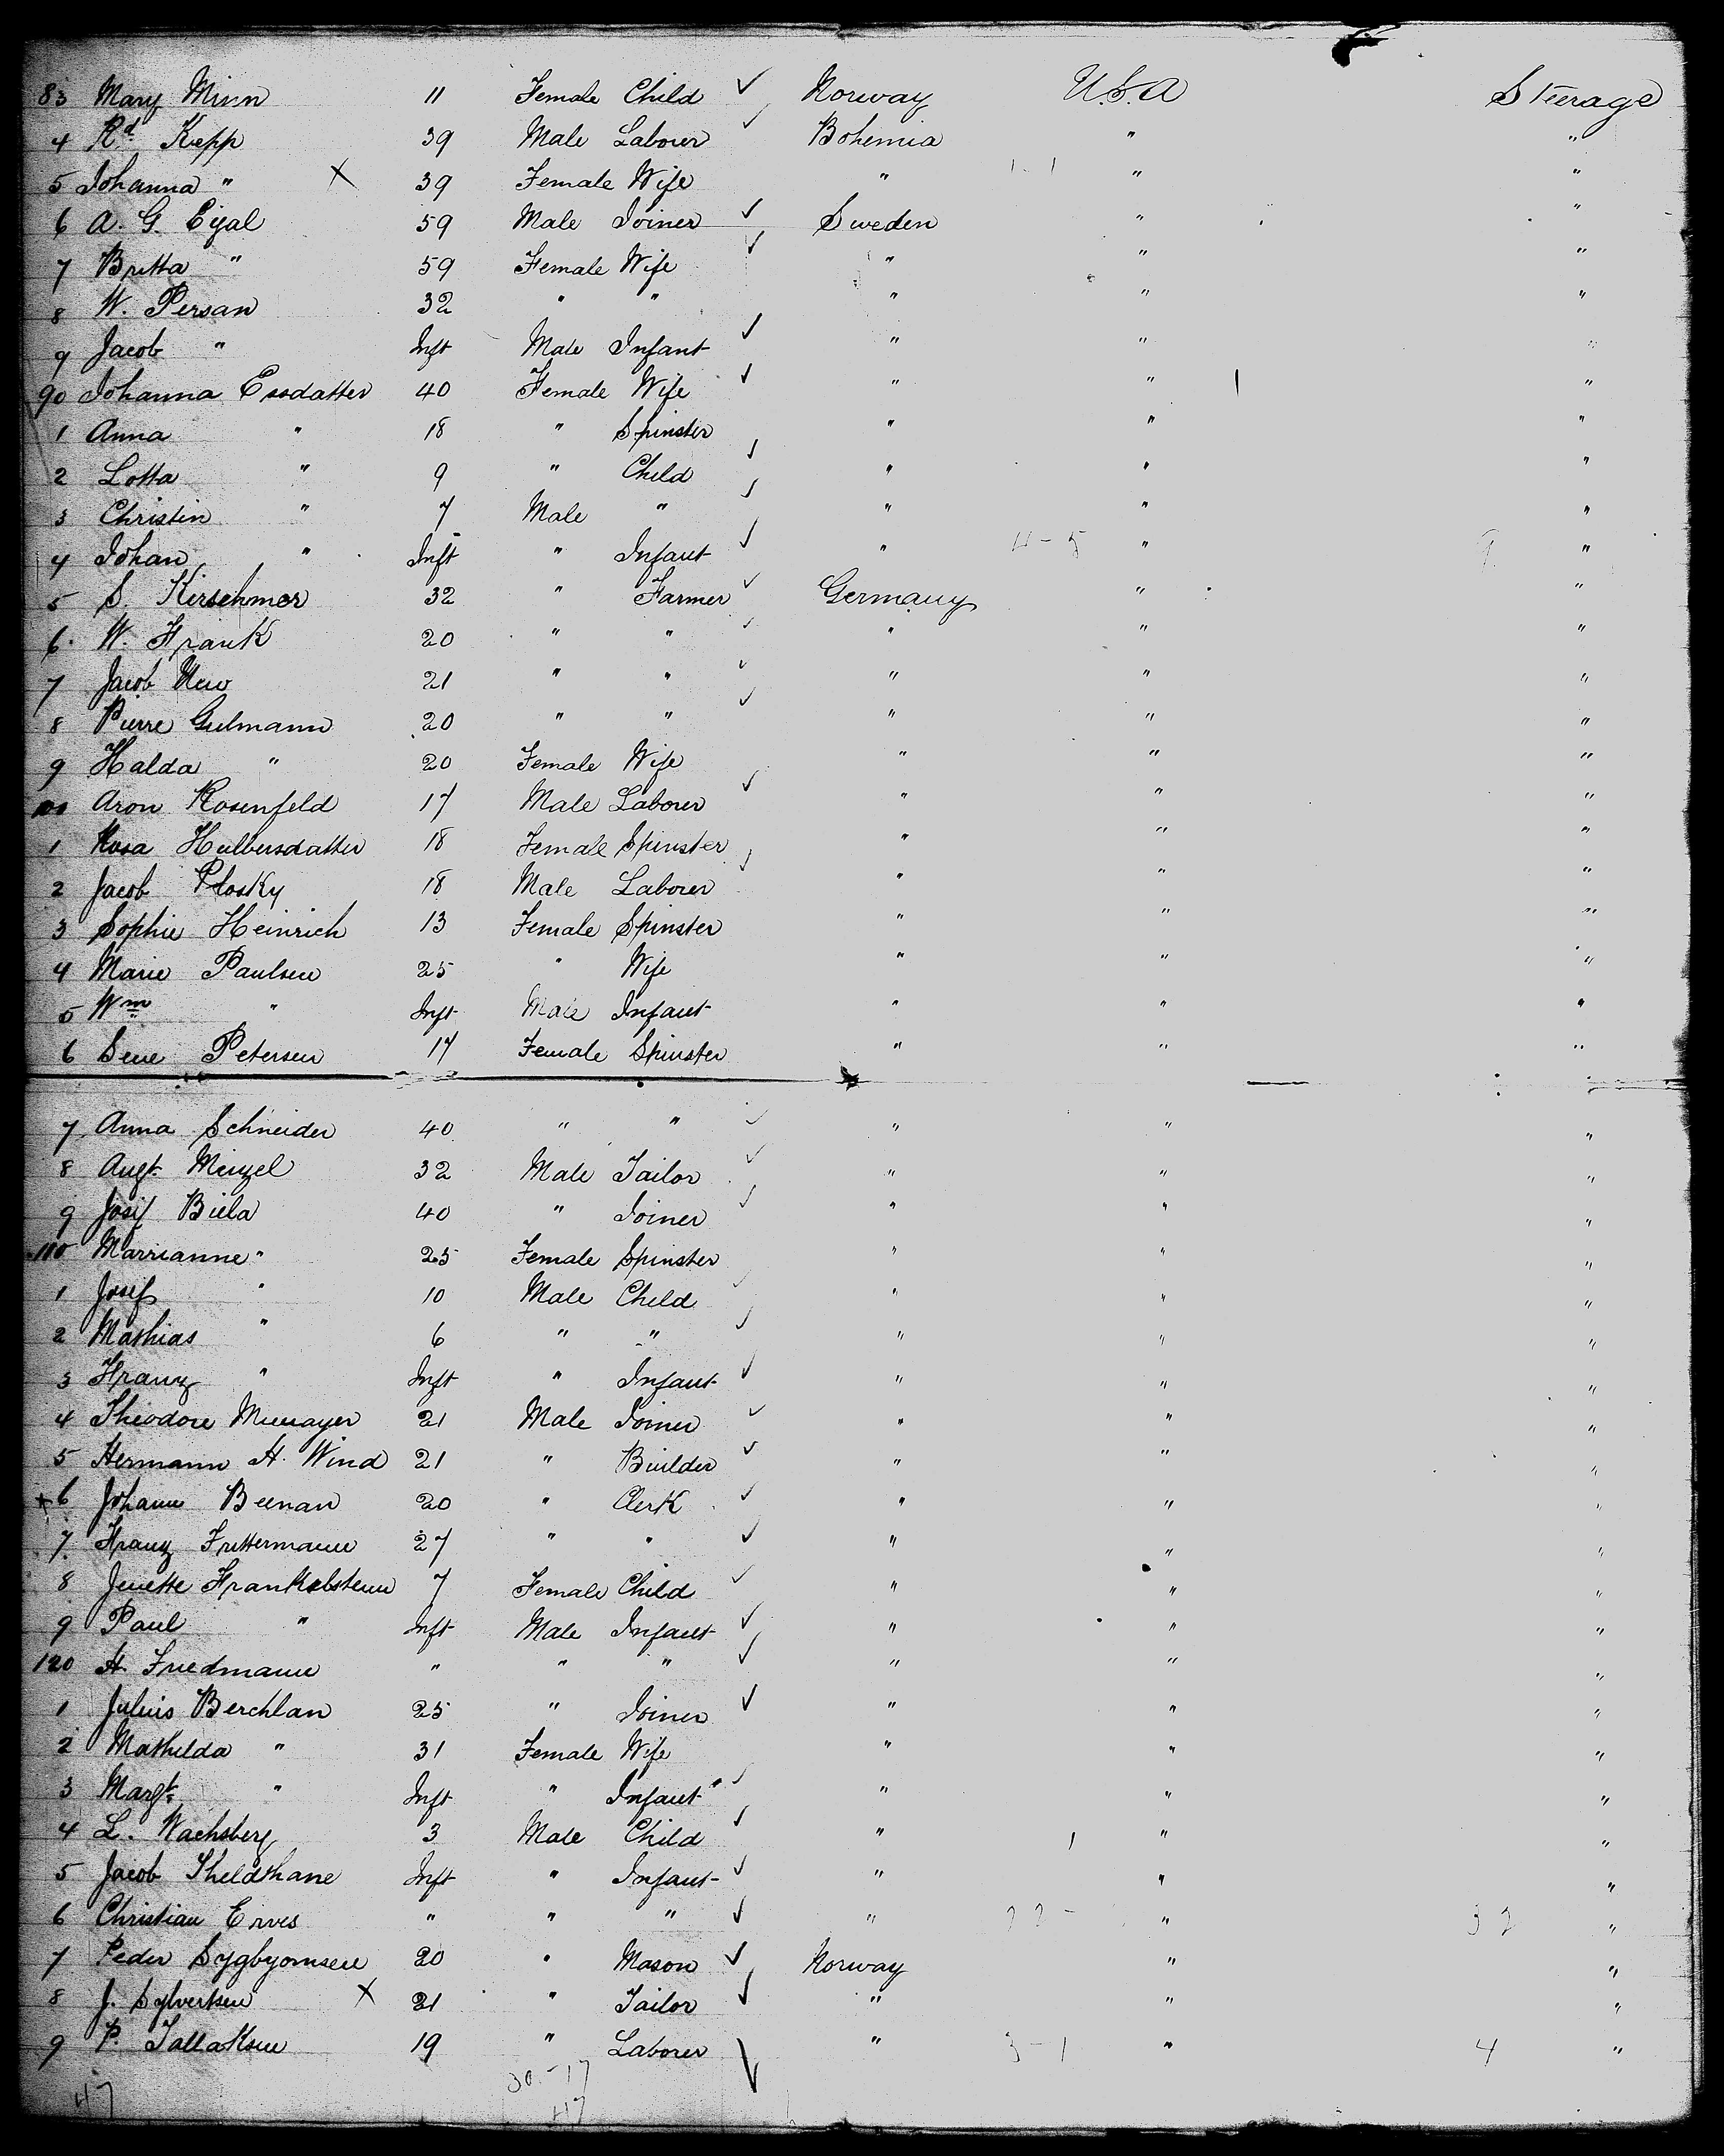 83 Mary Minn 11 Female Child ✓ Norway U.S.A Steerage
4 Rd Kepp 39 Male Laborer ✓ Bohemia " "
5 Johanna " X 39 Female Wife " 1-1 " "
6 A. G. Eyal 59 Male Joiner ✓ Sweden " "
7 Britta " 59 Female Wife ✓ " " "
8 W. Persan 32 " " " " "
9 Jacob " Inft Male Infant ✓ " " "
90 Johanna Essdatter 40 Female Wife ✓ " " "
1 Anna " 18 " Spinster " " "
2 Lotta " 9 " Child ✓ " " "
3 Christin " 7 Male " ✓ " " "
4 Johan " Inft " Infant ✓ " 4-5 " 9 "
5 S. Kirschmer 32 " Farmer ✓ Germany " "
6 W. Frank 20 " " ✓ " " "
7 Jacob New 21 " " ✓ " " "
8 Pierre Gulmann 20 " " ✓ " " "
9 Halda " 20 Female Wife " " "
100 Aron Rosenfeld 17 Male Laborer ✓ " " "
1 Rosa Hulbersdatter 18 Female Spinster " " "
2 Jacob Plosky 18 Male Laborer ✓ " " "
3 Sophie Heinrich 13 Female Spinster " " "
4 Marie Paulsen 25 " Wife " " "
5 Wm " Inft Male Infant " " "
6 Sene Petersen 17 Female Spinster " " "
7 Anna Schneider 40 " " ✓ " " "
8 Augt Menzel 32 Male Tailor ✓ " " "
9 Josif Biela 40 " Joiner ✓ " " "
110 Marrianne " 25 Female Spinster " " "
1 Josif " 10 Male Child ✓ " " "
2 Mathias " 6 " " ✓ " " "
3 Franz " Inft " Infant ✓ " " "
4 Theodore 21 Male Joiner ✓ " " "
5 Hermann H. Wind 21 " Builder ✓ " " "
x 6 Johann Beenan 20 " Clerk ✓ " " "
7 Franz Futtermann 27 " " ✓ " " "
8 Jenette Frankelstein 7 Female Child ✓ " " "
9 Paul " Inft Male Infant ✓ " " "
120 H. Friedmann " " " ✓ " " "
1 Julius Berchlan 25 " Joiner ✓ " " "
2 Mathilda " 31 Female Wife " " "
3 Margt " Inft " Infant ✓ " " "
4 L. Wachsberg 3 Male Child ✓ " 1 " "
5 Jacob Sheldthane Inft " Infant ✓ " " "
6 Christian Erves " " " ✓ " 22- " 32 "
7 Peder Sygbyomsen 20 " Mason ✓ Norway " "
8 J. Sylvertsen X 21 " Tailor ✓ " " "
9 P. Tallaksen 19 " Laborer ✓ " 3-1 " 4 "
30-17
47 47